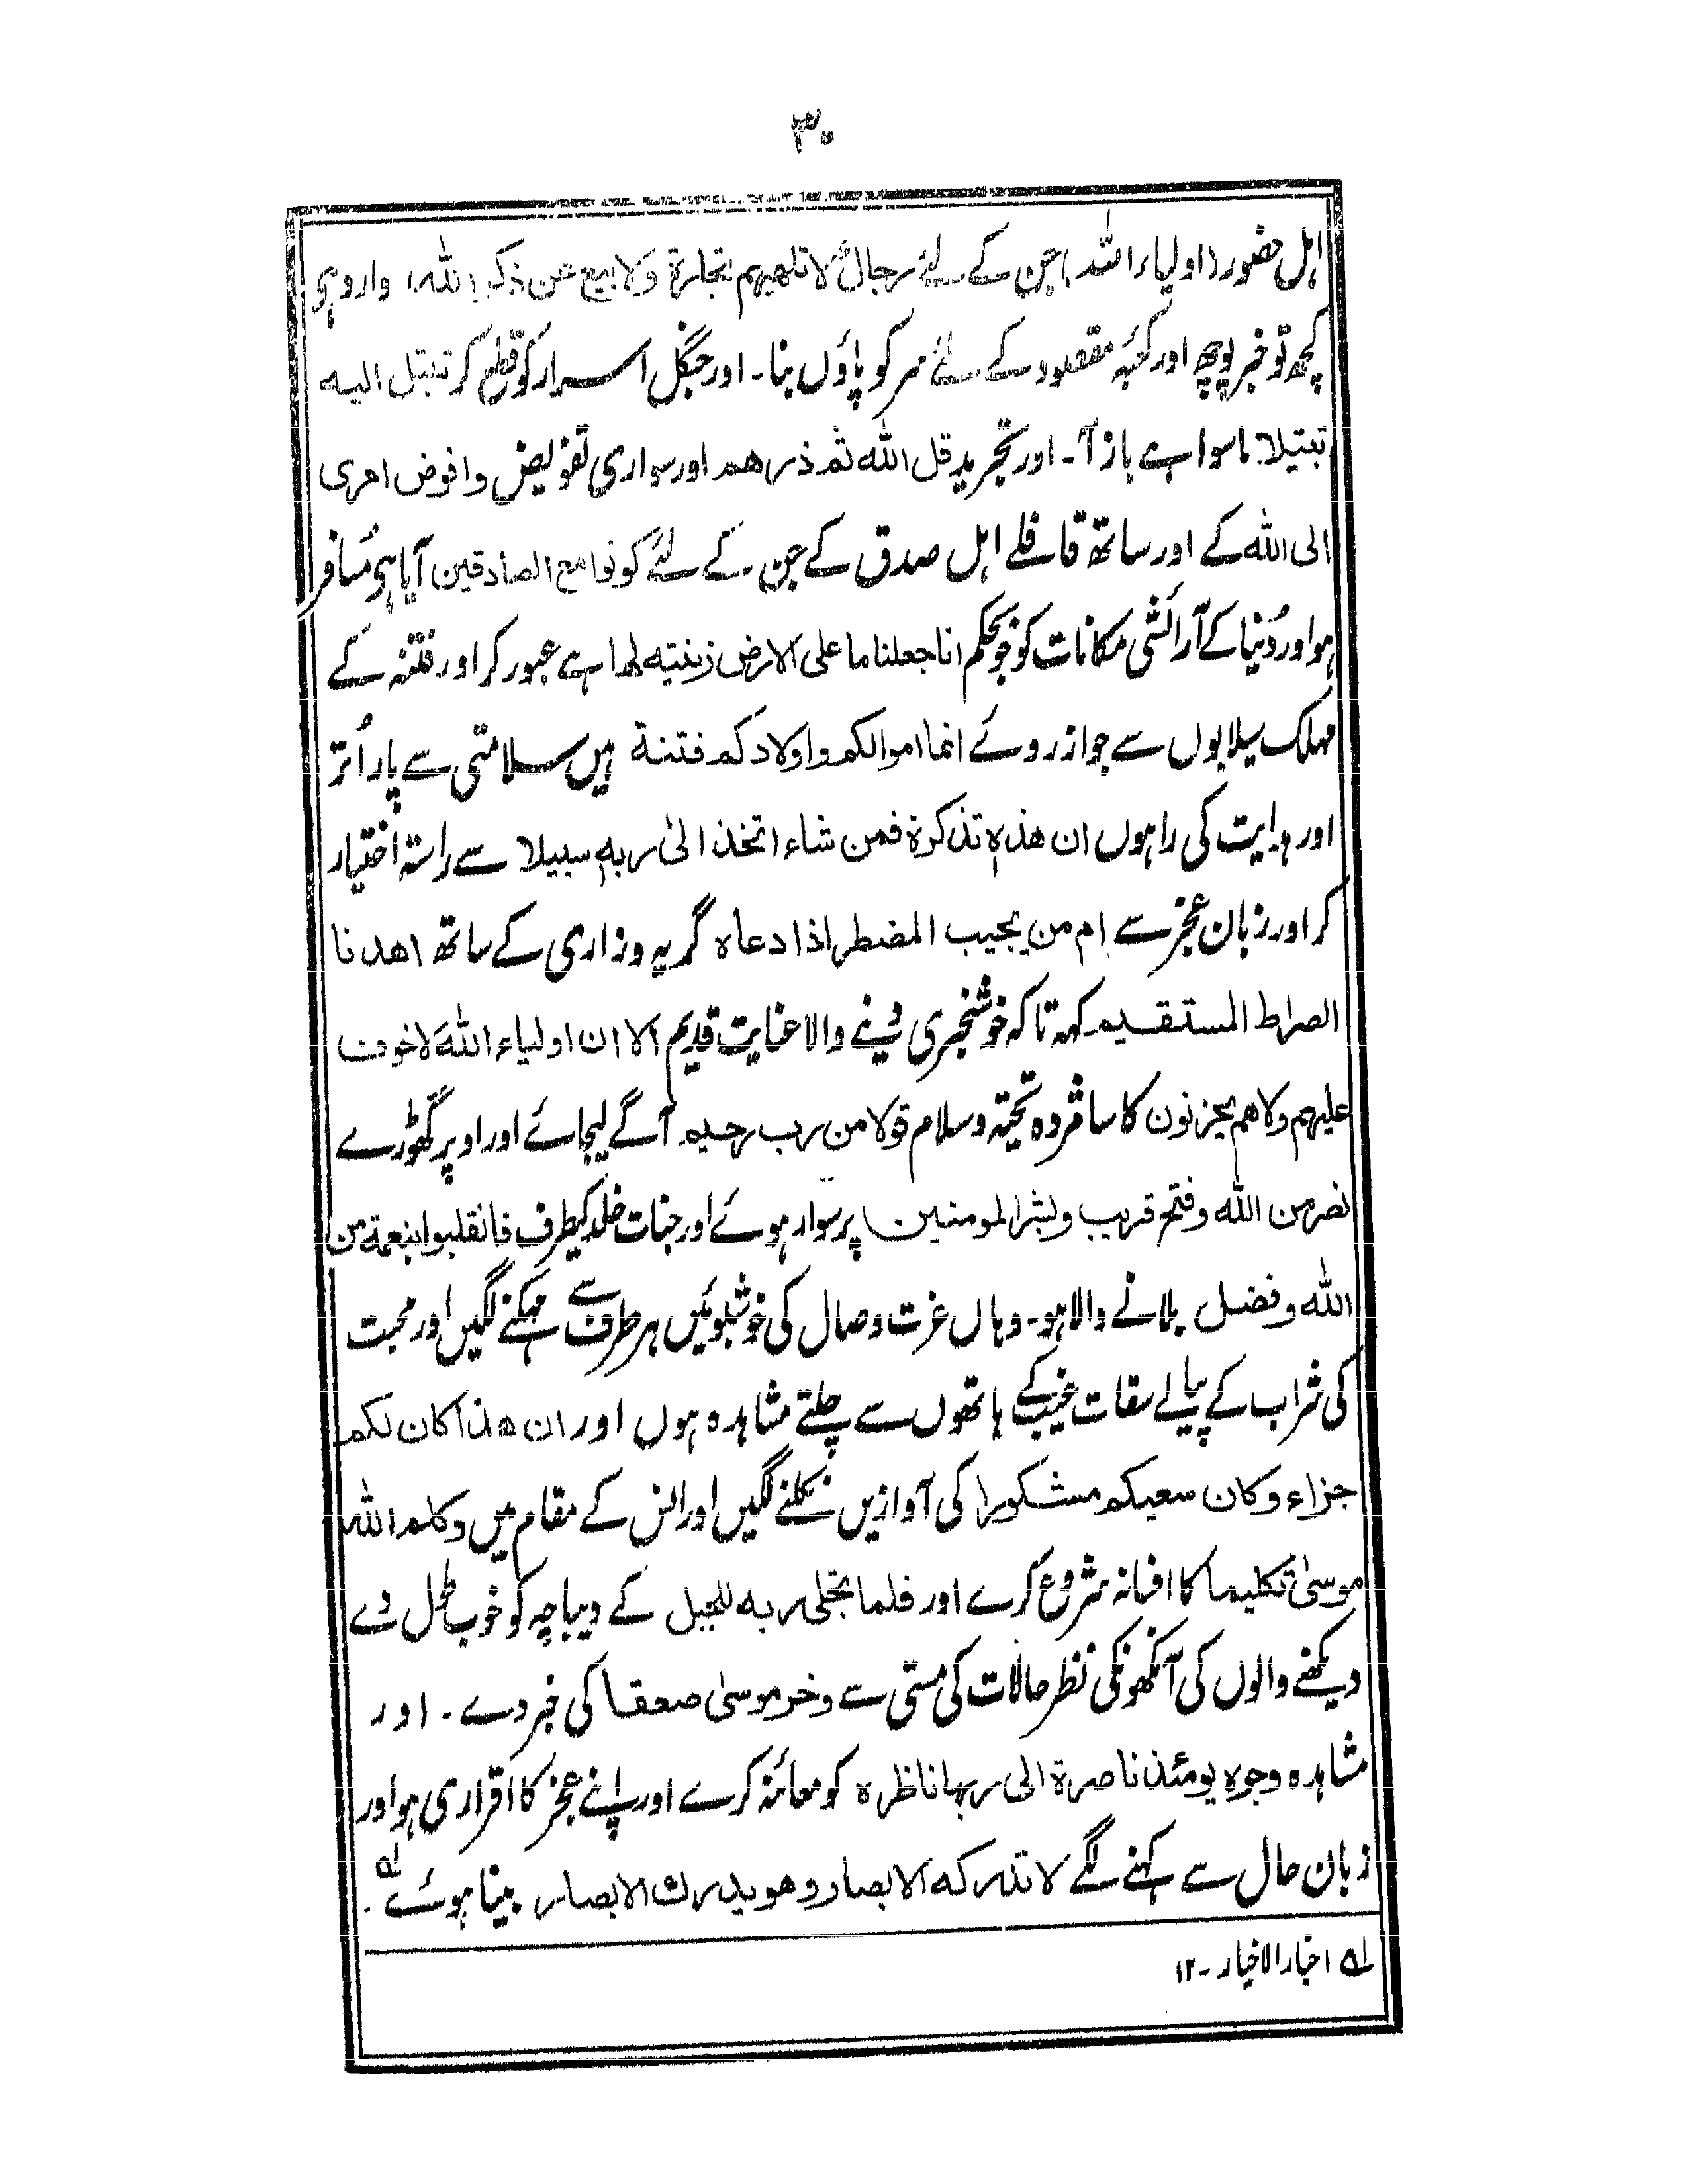 ۳۰
اہل حضور (اولیاء اللہ) جن کے لئے رجالٌ لا تلھیہم تجارۃ ولا بیع عن ذکر اللہ، وارد ہی
کچھ تو خبر پوچھ اور کعبہ مقصود کے لئے سر کو پاؤں بنا۔ اور جنگل اسرار کو قطع کر تبتل الیہ
تبتیلا۔ ماسوا سے باز آ۔ اور تجرید قل اللہ ثم ذرھم اور سواری تفویض وافوض امری
الی اللہ کے اور ساتھ قافلے اہل صدق کے جن کے لئے کونوا مع الصادقین آیا ہی مُسافر
ہو اور دُنیا کے آرائشی مکانات کو جو بحکم انا جعلنا ما علی الارض زینتہ لھا ہے عبور کر اور فتنہ کے
مہلک سیلابوں سے جو از روئے انما اموالکم واولادکم فتنۃ ہیں سلامتی سے پار اُتر
اور ہدایت کی راہوں ان ھذہٖ تذکرۃ فمن شاء اتخذ الیٰ ربہٖ سبیلا سے راستہ اختیار
کر اور زبان عجز سے ام من یجیب المضطر اذا دعاہ گریہ و زاری کے ساتھ اھدنا
الصراط المستقیم کہہ تاکہ خوشخبری دینے والا عنایت قدیم الا ان اولیاء اللہ لا خوف
علیہم ولا ھم یحزنون کا ساتھ مژدہ تحیّتہ وسلام قولا من رب رحیم آگے لیجائے اور اوپر گھوڑے
نصر من اللہ وفتح قریب وبشر المومنین پر سوار ہوئے اور جنات خلد کیطرف فانقلبوا بنعمۃ من
اللہ وفضل بلانے والا ہو۔ وہاں عزت وصال کی خوشبوئیں ہر طرف سے مہکنے لگیں اور محبت
کی شراب کے پیالے سقات غیب کے ہاتھوں سے چلتے مشاہدہ ہوں اور ان ھذا کان لکم
جزاء وکان سعیکم مشکورا کی آوازیں نکلنے لگیں اور انس کے مقام میں وکلم اللہ
موسیٰ تکلیما کا افسانہ شروع کرے اور فلما تجلی ربہ للجبل کے دیباچہ کو خوب طول دے
دیکھنے والوں کی آنکھونکی نظر حالات کی مستی سے وخر موسیٰ صعقا کی خبر دے۔ اور
مشاہدہ وجوہ یومئذ ناصرۃ الی ربہا ناظرہ کو معائنہ کرے اور اپنے عجز کا اقراری ہو اور
زبان حال سے کہنے لگے لا تدرکہ الابصار وھو یدرک الابصار بینا ہوئے ؎۱۔
؎۱ اخبار الاخیار۔ ۱۲